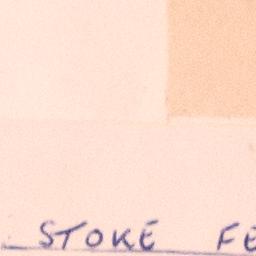 STOKE FE